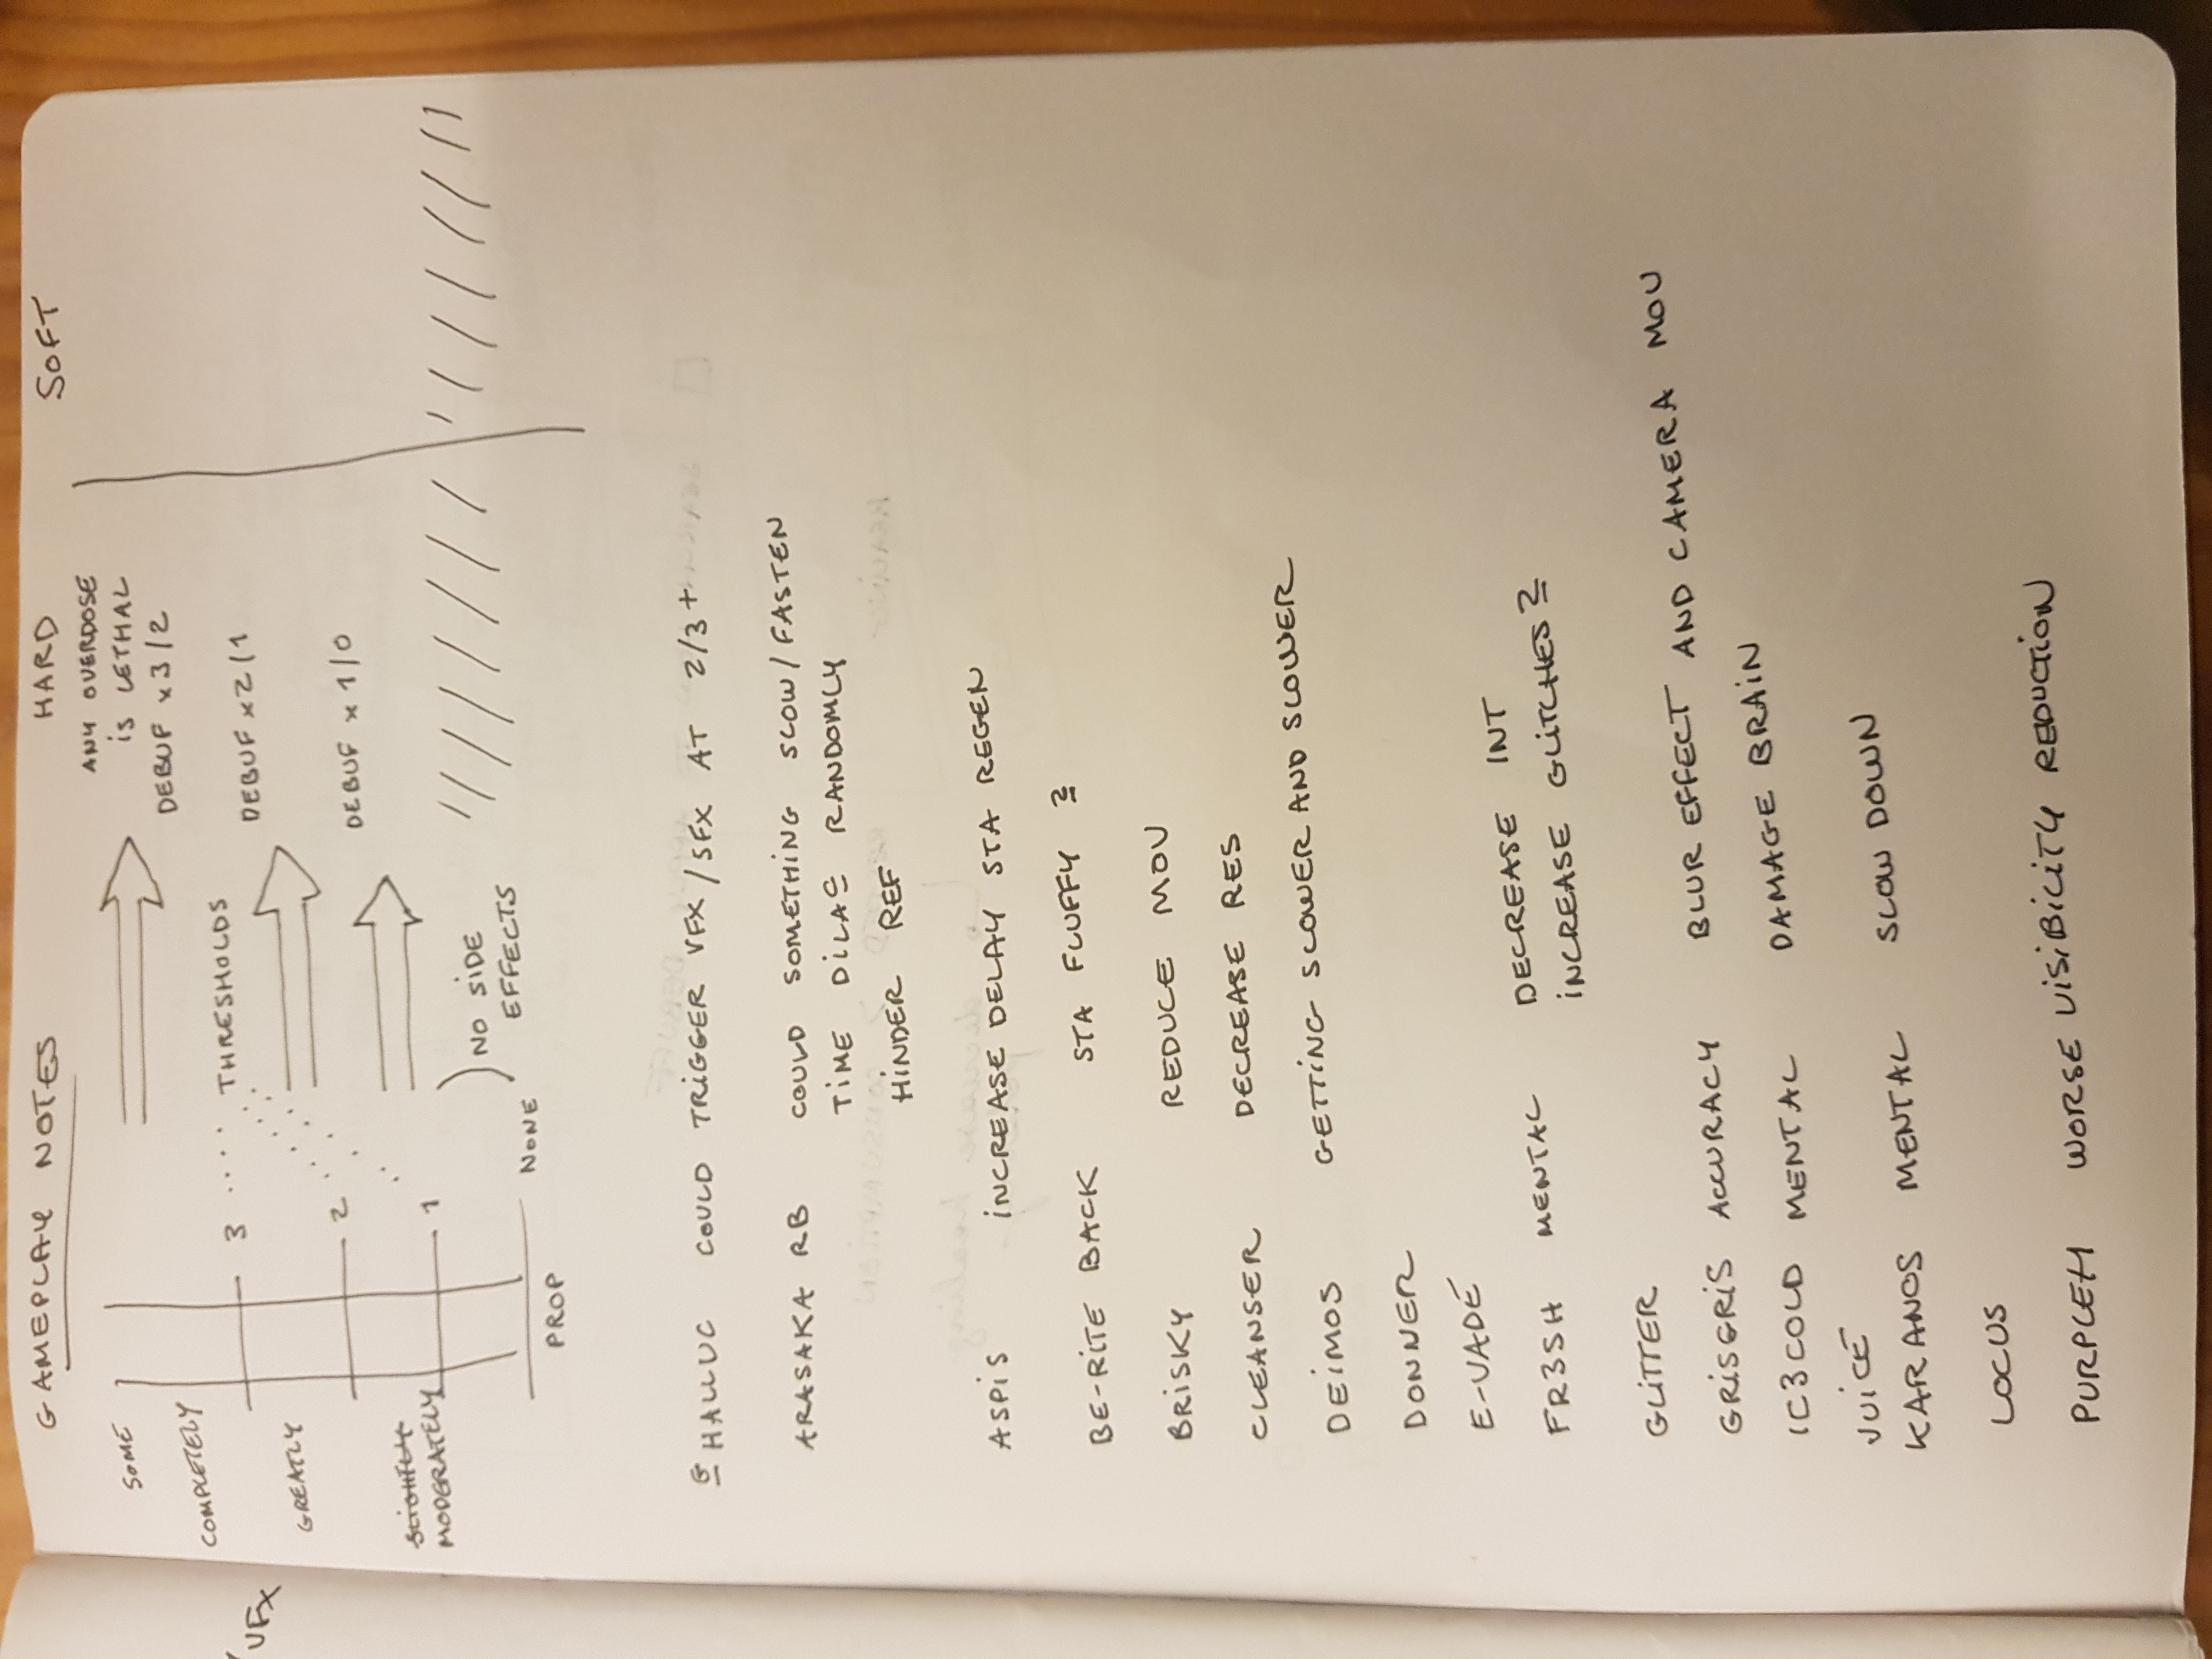 GAMEPLAY NOTES HARD SOFT
SOME
ANY OVERDOSE
IS LETHAL
DEBUF x 3/2
COMPLETELY
3 .... THRESHOLDS
DEBUF x 2/1
VFX
GREATLY
2
DEBUF x 1/0
SLIGHTLY
MODERATELY
1
NO SIDE
EFFECTS
NONE
PROP
HALLUC COULD TRIGGER VFX/SFX AT 2/3+
ARASAKA RB COULD SOMETHING SLOW/FASTEN
TIME DILAC RANDOMLY
HINDER REF
ASPIS INCREASE DELAY STA REGEN
BE-RITE BACK STA FLUFFY ?
BRISKY REDUCE MOV
CLEANSER DECREASE RES
DEIMOS GETTING SLOWER AND SLOWER
DONNER
E-VADE
FR3SH MENTAL DECREASE INT
INCREASE GLITCHES?
GLITTER
GRISGRIS ACCURACY BLUR EFFECT AND CAMERA MOV
IC3COLD MENTAL DAMAGE BRAIN
JUICE
KARANOS MENTAL SLOW DOWN
LOCUS
WORSE VISIBILITY REDUCTION